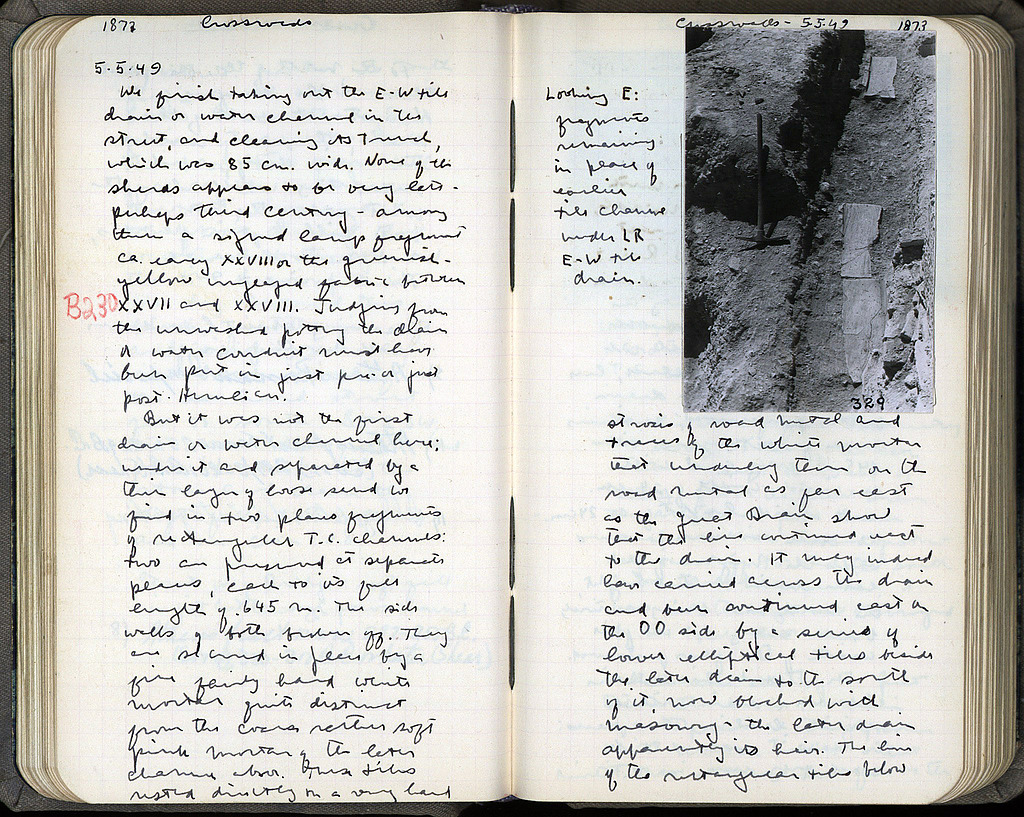 1872 Crossroads
5.5.49
We finish taking out the E-W tile
drain or water channel in this
street, and cleaning its trench,
which was 85 cm. wide. None of the
sherds appears to be very late -
perhaps third century - among
them a signed lamp fragment
ca. early XXVIII or the greenish-
yellow glazed fabric between
B230 XXVII and XXVIII. Judging from
the unwashed pottery the drain
or water conduit must have
been put in just pre or just
post-Herulian.
But it was not the first
drain or water channel here:
under it and separated by a
thin layer of loose sand we
find in two places fragments
of rectangular T.C. channels:
two are preserved at separate
places, each to its full
length of .645 m. The side
walls of both broken off. They
are secured in place by a
fine fairly hard white
mortar quite distinct
from the coarse rather soft
pink mortar of the later
channel above. These tiles
rested directly on a very hard
Crossroads - 5.5.49 1873
Looking E:
fragments
remaining
in place of
earlier
tile channel
under LR
E-W tile
drain.
329
of road metal and
traces of the white mortar
that underlay them on the
road metal as far east
as the Great Drain show
that the line continued east
to the drain. It may indeed
have carried across the drain
and been continued east on
the OO side by a series of
lower elliptical tiles beside
the later drain to the south
of it, now blocked with
masonry - the later drain
apparently its heir. The line
of the rectangular tiles below